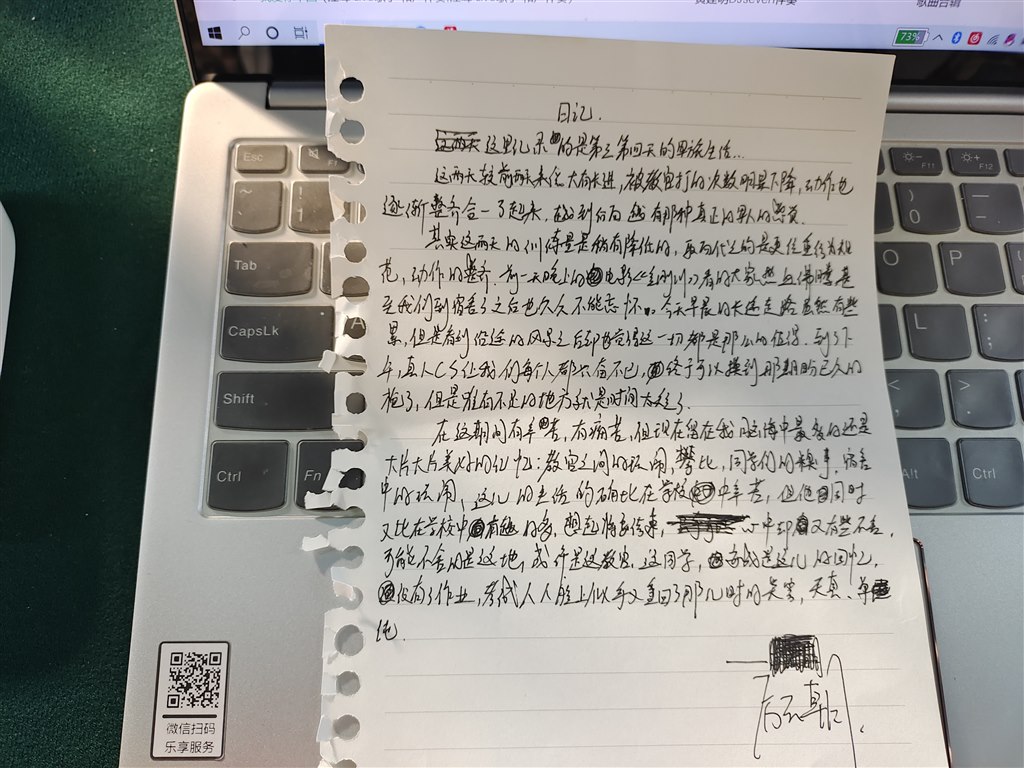 73%
Esc
F7
F11
F12
~
!
1
)
0
Tab
O
P
CapsLk
A
L
Shift
Ctrl
Fn
Alt
Ctrl
微信扫码
乐享服务
日记.
这里记录的是第三第四天的军旅生活...
这两天较前两天来说大有长进,被教官打的次数明显下降,动作也
逐渐整齐合一了起来.
其实这两天的训练量是稍有降低的,
范,动作的整齐.前一天晚上的电影《金刚川》看的大家热血沸腾甚
至我们到宿舍了之后也久久不能忘怀。今天早晨的长途走路虽然有些
累,但是看到沿途的风景之后却觉得这一切都是那么的值得.到了下
午,真人CS让我们每个人都兴奋不已,终于可以摸到那期盼已久的
枪了,但是唯有不足的地方就是时间太短了.
在这期间有辛苦,有痛苦,但现在留在我脑海中最多的还是
大片大片美好的回忆:教官之间的玩闹,攀比,同学们的糗事,宿舍
中的玩闹,这儿的生活的确比在学校中辛苦,但他同时
又比在学校中有趣的多.想起将要结束,心中却又有些不舍,
可能不舍的是这地,或许是这教官,这同学,亦或是这儿的回忆,
没有了作业,考试人人脸上似乎又重回了那儿时的笑容,天真、单
纯.